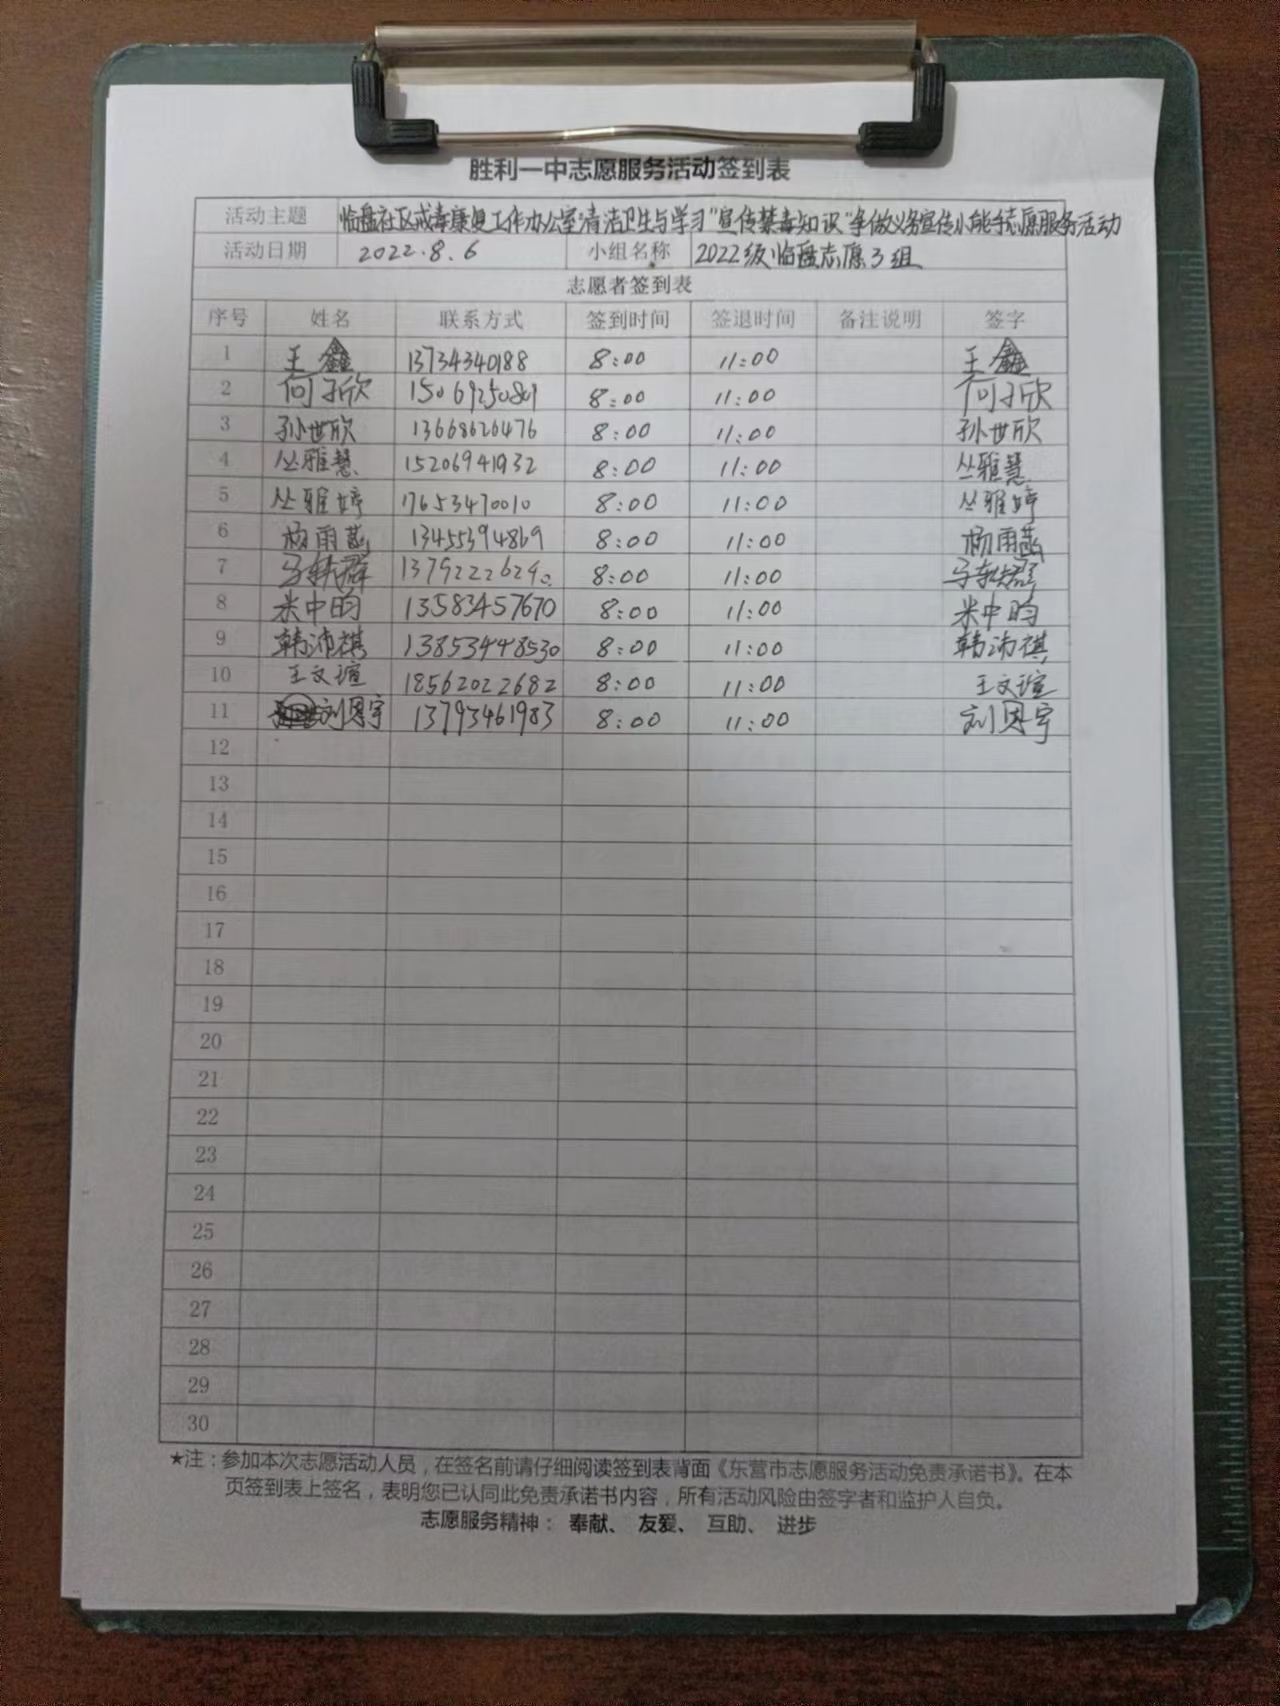 胜利一中志愿服务活动签到表
活动主题 临盘社区戒毒康复工作办公室清洁卫生与学习"宣传禁毒知识"争做义务宣传小能手志愿服务活动
活动日期 2022.8.6 小组名称 2022级临盘志愿3组
志愿者签到表
序号 姓名 联系方式 签到时间 签退时间 备注说明 签字
1 王鑫 13734340188 8:00 11:00 王鑫
2 何子欣 15069250801 8:00 11:00 何子欣
3 孙世欣 13668626476 8:00 11:00 孙世欣
4 丛雅慧 15206941932 8:00 11:00 丛雅慧
5 丛雅婷 17653470010 8:00 11:00 丛雅婷
6 杨雨菡 13455394869 8:00 11:00 杨雨菡
7 8:00 11:00
8 米中昀 13583457670 8:00 11:00 米中昀
9 韩沛祺 13853448530 8:00 11:00 韩沛祺
10 王文谊 18562022682 8:00 11:00 王文谊
11 刘恩宇 13793461983 8:00 11:00 刘恩宇
12
13
14
15
16
17
18
19
20
21
22
23
24
25
26
27
28
29
30
★注：参加本次志愿活动人员，在签名前请仔细阅读签到表背面《东营市志愿服务活动免责承诺书》。在本
页签到表上签名，表明您已认同此免责承诺书内容，所有活动风险由签字者和监护人自负。
志愿服务精神： 奉献、 友爱、 互助、 进步